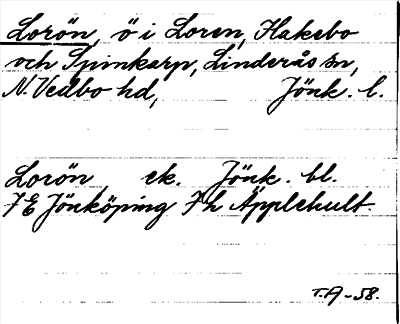 Lorön, ö i Loren, Hakebo
och Spinkarp, Linderås sn,
N. Vedbo hd, Jönk. l.
Lorön ek. Jönk. bl.
7 E Jönköping 7 h Äpplehult.
T.A-58.